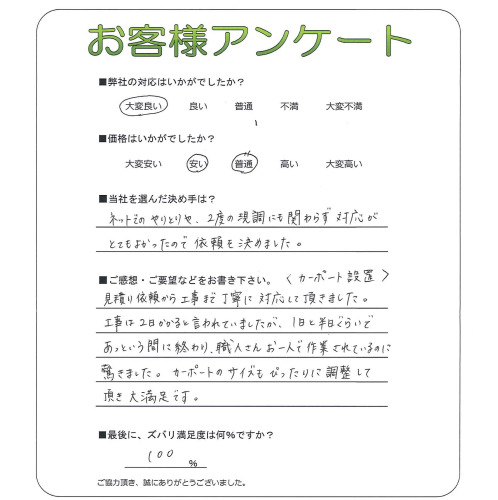 お客様アンケート
■弊社の対応はいかがでしたか？
大変良い 良い 普通 不満 大変不満
■価格はいかがでしたか？
大変安い 安い 普通 高い 大変高い
■当社を選んだ決め手は？
ネットでのやりとりや、2度の現調にも関わらず対応が
とてもよかったので依頼を決めました。
■ご感想・ご要望などをお書き下さい。〈カーポート設置〉
見積り依頼から工事まで丁寧に対応して頂きました。
工事は2日かかると言われていましたが、1日と半日ぐらいで
あっという間に終わり、職人さんお一人で作業されているのに
驚きました。カーポートのサイズもぴったりに調整して
頂き大満足です。
■最後に、ズバリ満足度は何％ですか？
100 ％
ご協力頂き、誠にありがとうございました。